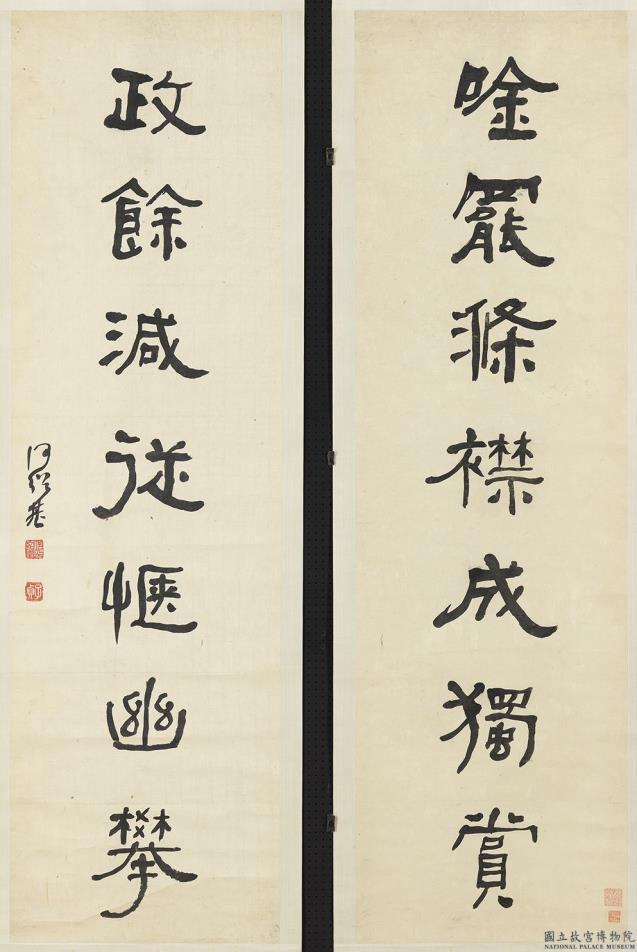 唫罷滌襟成獨賞
政餘減從愜幽攀
何紹基
子貞
國立故宮博物院
NATIONAL PALACE MUSEUM